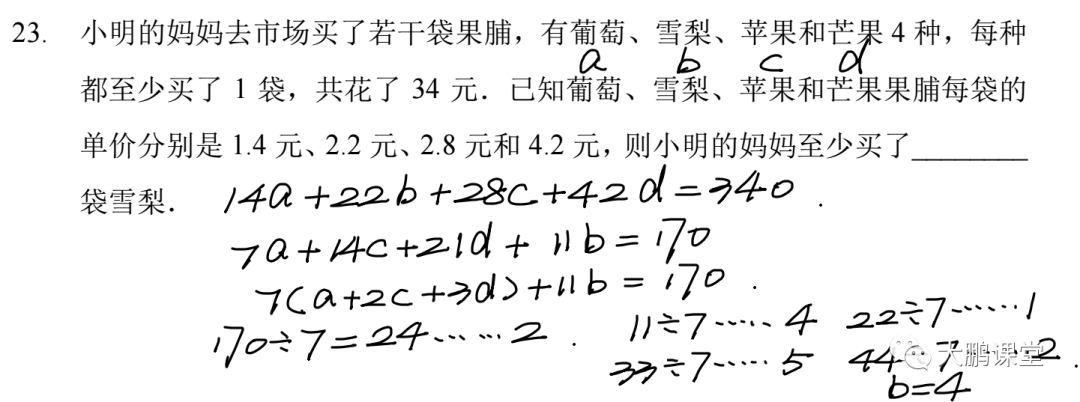 23. 小明的妈妈去市场买了若干袋果脯，有葡萄、雪梨、苹果和芒果 4 种，每种
a b c d
都至少买了 1 袋，共花了 34 元．已知葡萄、雪梨、苹果和芒果果脯每袋的
单价分别是 1.4 元、2.2 元、2.8 元和 4.2 元，则小明的妈妈至少买了________
袋雪梨． 14a+22b+28c+42d=340 .
7a+14c+21d+11b=170
7(a+2c+3d)+11b=170 .
170÷7=24……2 . 11÷7……4 22÷7……1
33÷7……5 44÷7……2 .
大鹏课堂
b=4